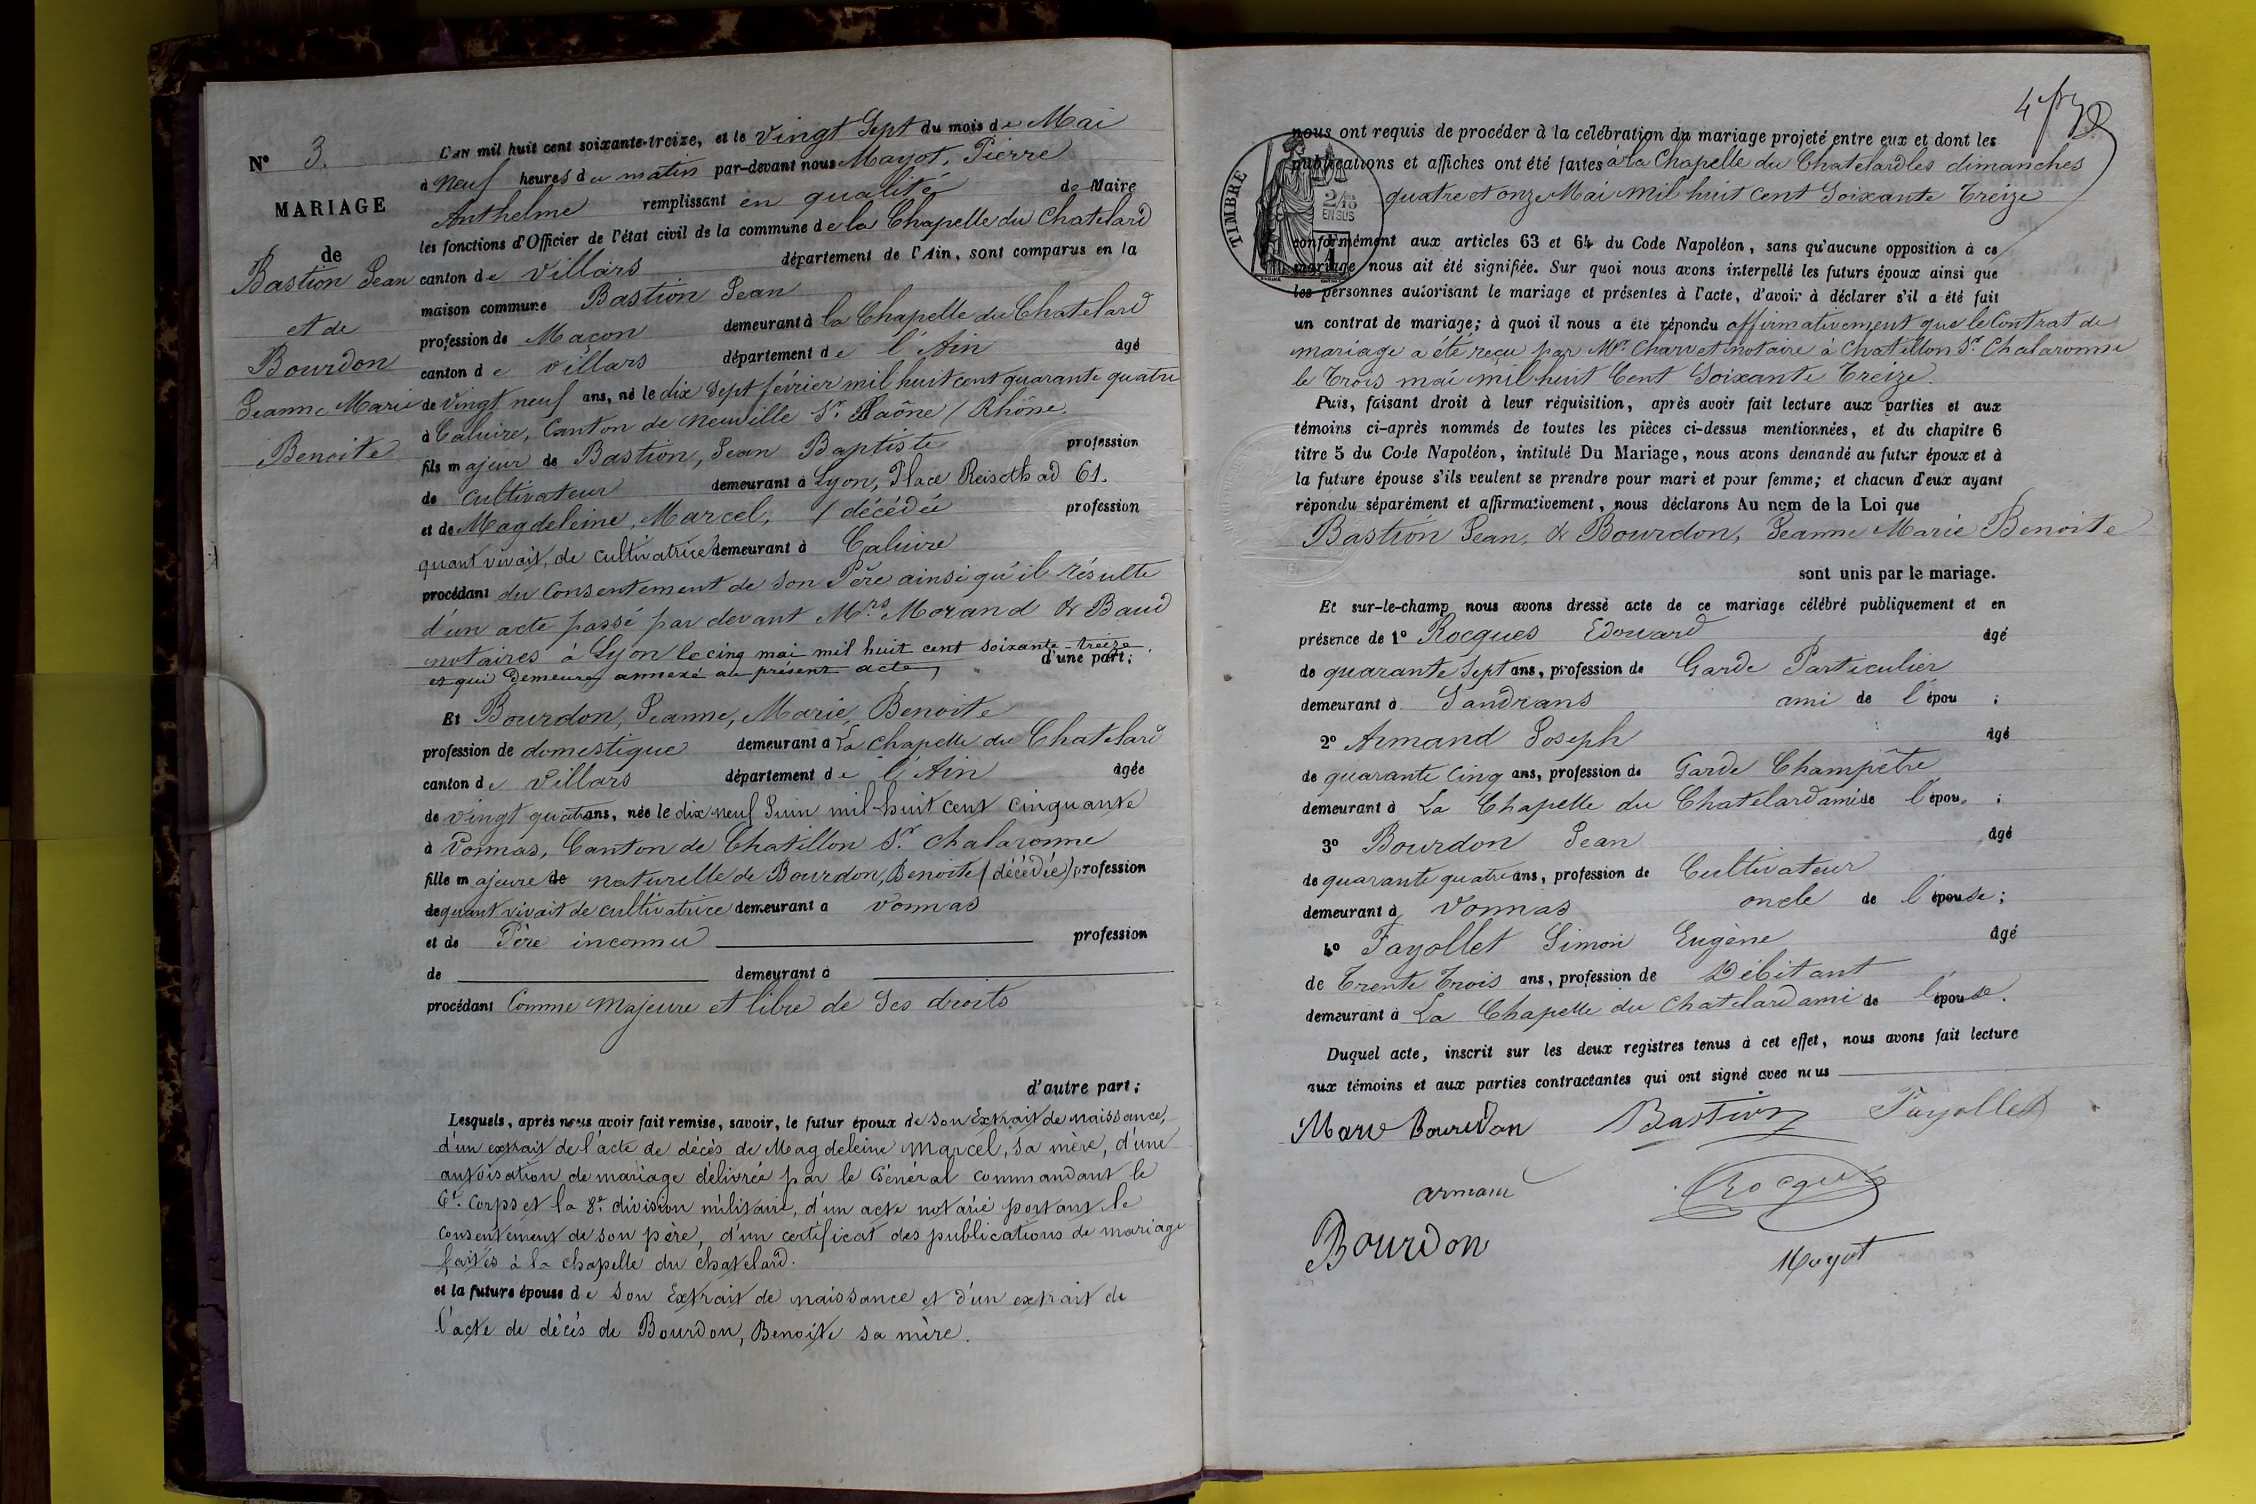 N° 3.
MARIAGE
de
Bastion Jean
et de
Bourdon
Jeanne Marie
Benoite
L'an mil huit cent soixante-treize, et le vingt Sept du mois de Mai
à neuf heures du matin par-devant nous Mayot, Pierre
Anthelme remplissant en qualité de Maire
les fonctions d'Officier de l'état civil de la commune de la Chapelle du Chatelard
canton de Villars département de l'Ain, sont comparus en la
maison commune Bastion Jean
profession de Maçon demeurant à la Chapelle du Chatelard
canton de Villars département de l'Ain âgé
de vingt neuf ans, né le dix Sept février mil huit cent quarante quatre
à Caluire, Canton de Neuville Sr Saône / Rhône.
fils majeur de Bastion, Jean Baptiste profession
de Cultivateur demeurant à Lyon, Place 61.
et de Magdeleine, Marcel, / décédée profession
quant vivait, de cultivatrice demeurant à Caluire
procédant du Consentement de son Père ainsi qu'il résulte
d'un acte passé par devant Mrs Morand & Baud
notaires à Lyon le cinq mai mil huit cent soixante-treize
et qui demeure annexé au présent acte, d'une part;
Et Bourdon, Jeanne, Marie, Benoite
profession de domestique demeurant à La Chapelle du Chatelard
canton de Villars département de l'Ain âgée
de vingt quatre ans, née le dix neuf Juin mil-huit cent cinquante
à Vonnas, Canton de Chatillon Sr Chalaronne
fille majeure de naturelle de Bourdon, Benoite (décédée) profession
de quant vivait de cultivatrice demeurant à Vonnas
et de Père inconnu profession
de demeurant à
procédant Comme Majeure et libre de Ses droits
d'autre part;
Lesquels, après nous avoir fait remise, savoir, le futur époux de son Extrait de naissance,
d'un extrait de l'acte de décès de Magdeleine Marcel, sa mère, d'une
autoisation de mariage délivrée par le Général commandant le
6e Corps et la 8e division militaire, d'un acte notarié portant le
consentement de son père, d'un certificat des publications de mariage
faites à la chapelle du chatelard.
et la future épouse de son Extrait de naissance et d'un extrait de
l'acte de décès de Bourdon, Benoite sa mère.
TIMBRE
2/10
EN SUS
nous ont requis de procéder à la célébration du mariage projeté entre eux et dont les
publications et affiches ont été faites à la Chapelle du Chatelard les dimanches
quatre et onze Mai mil huit cent Soixante Treize
conformément aux articles 63 et 64 du Code Napoléon, sans qu'aucune opposition à ce
mariage nous ait été signifiée. Sur quoi nous avons interpellé les futurs époux ainsi que
les personnes autorisant le mariage et présentes à l'acte, d'avoir à déclarer s'il a été fait
un contrat de mariage; à quoi il nous a été répondu affirmativement que le Contrat de
mariage a été reçu par Mr. Charvet notaire à Chatillon Sr Chalaronne
le Trois mai mil huit Cent Soixante Treize.
Puis, faisant droit à leur réquisition, après avoir fait lecture aux parties et aux
témoins ci-après nommés de toutes les pièces ci-dessus mentionnées, et du chapitre 6
titre 5 du Code Napoléon, intitulé Du Mariage, nous avons demandé au futur époux et à
la future épouse s'ils veulent se prendre pour mari et pour femme; et chacun d'eux ayant
répondu séparément et affirmativement, nous déclarons Au nom de la Loi que
Bastion Jean, & Bourdon, Jeanne Marie Benoite
sont unis par le mariage.
Et sur-le-champ nous avons dressé acte de ce mariage célébré publiquement et en
présence de 1° Rocques Edouard âgé
de quarante Sept ans, profession de Garde Particulier
demeurant à Sandrans ami de l'épou ;
2° Armand Joseph âgé
de quarante Cinq ans, profession de Garde Champêtre
demeurant à La Chapelle du Chatelard ami de l'épou. ;
3° Bourdon Jean âgé
de quarante quatre ans, profession de Cultivateur
demeurant à Vonnas oncle de l'épouse;
4° Fayollet Simon Eugène âgé
de Trente Trois ans, profession de Débitant
demeurant à La Chapelle du Chatelard ami de l'épouse.
Duquel acte, inscrit sur les deux registres tenus à cet effet, nous avons fait lecture
aux témoins et aux parties contractantes qui ont signé avec nous
Marie Bourdon Bastion Fayollet
armand Rocques
Bourdon Mayot